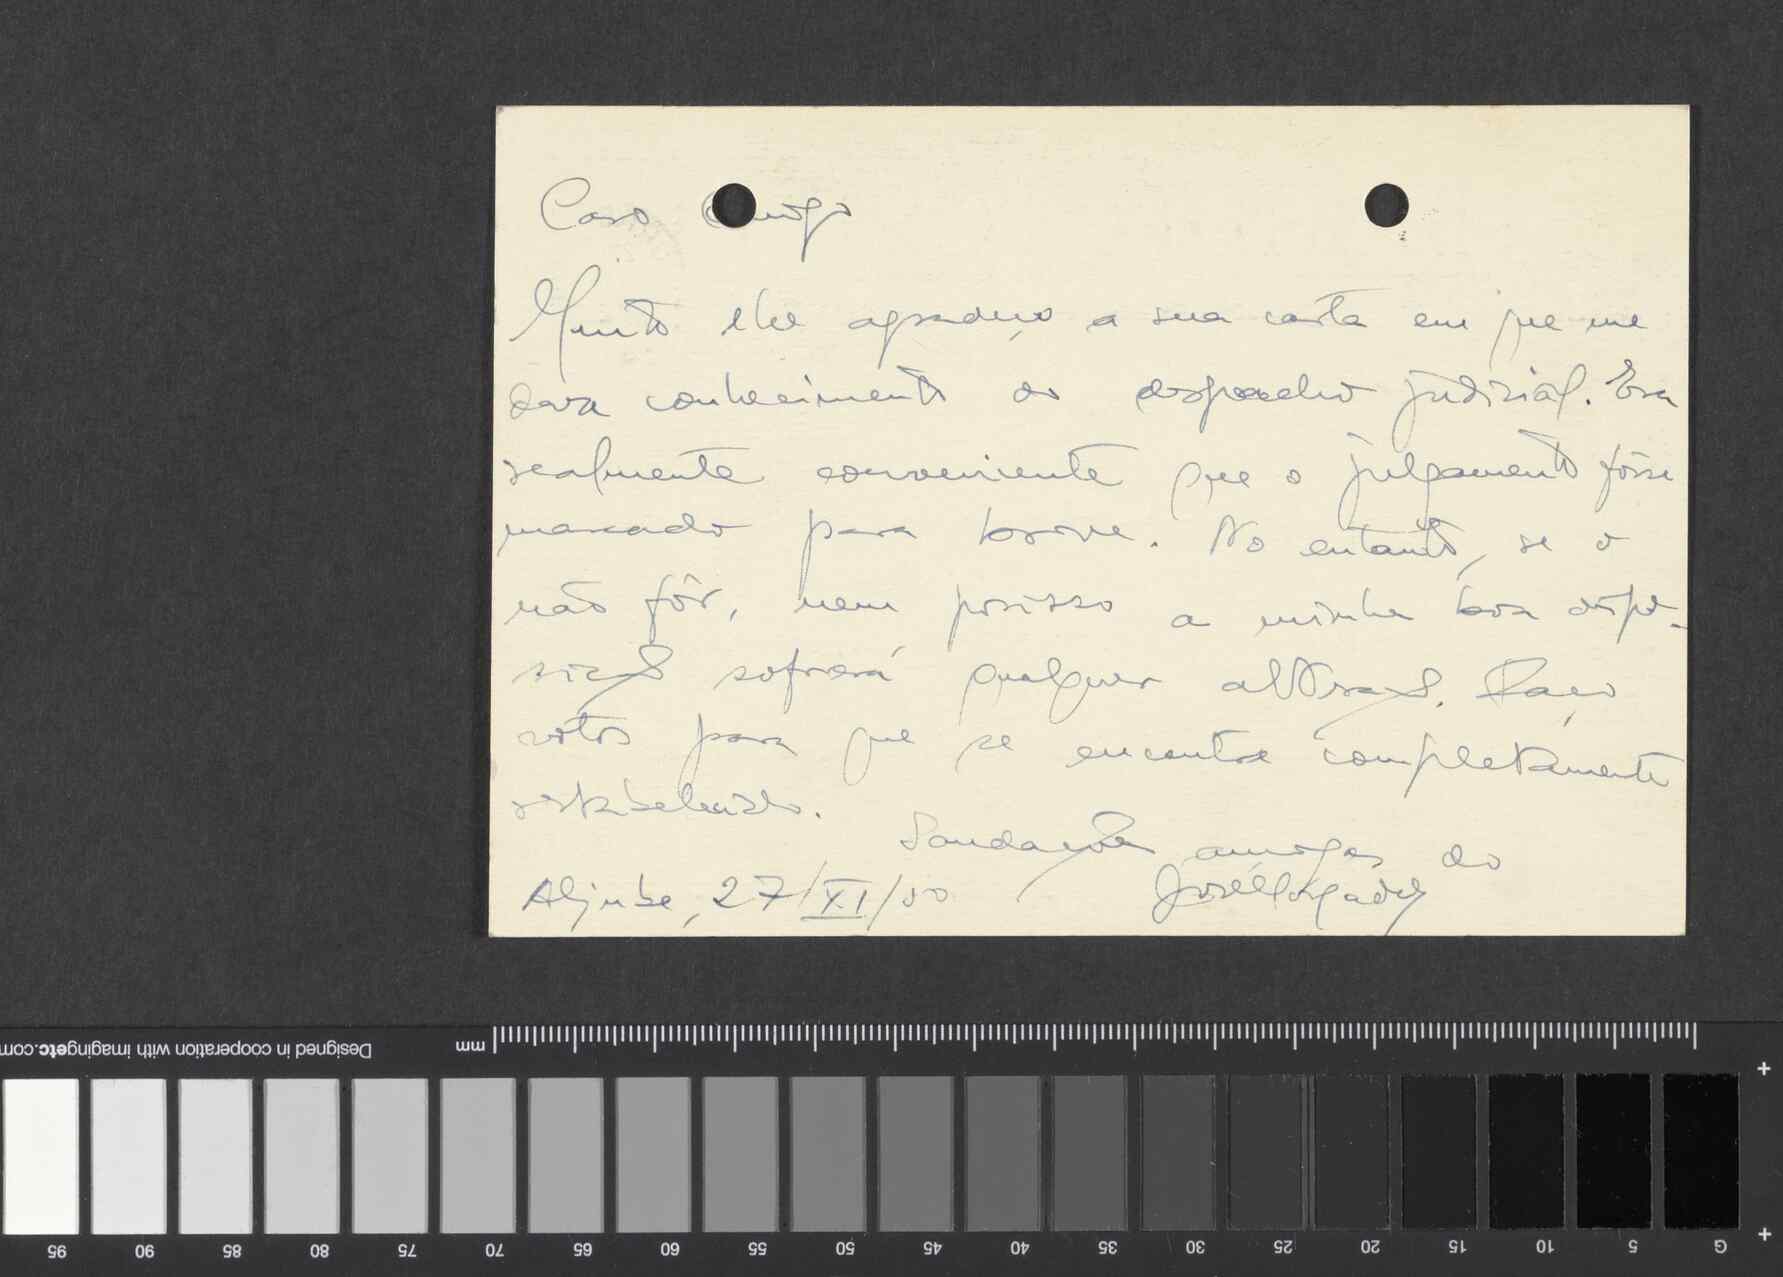 Caro Amigo
Muito lhe agradeço a sua carta em que me
dava conhecimento do despacho judicial. Era
realmente conveniente que o julgamento fôsse
marcado para breve. No entanto, se o
não fôr, nem por isso a minha boa dispo-
sição sofrerá qualquer alteração. Faço
votos para que se encontre completamente
restabelecido.
Saudações amigas do
Aljube, 27/XI/50
mm
Designed in cooperation with imagingetc.com
95 90 85 80 75 70 65 60 55 50 45 40 35 30 25 20 15 10 5 G